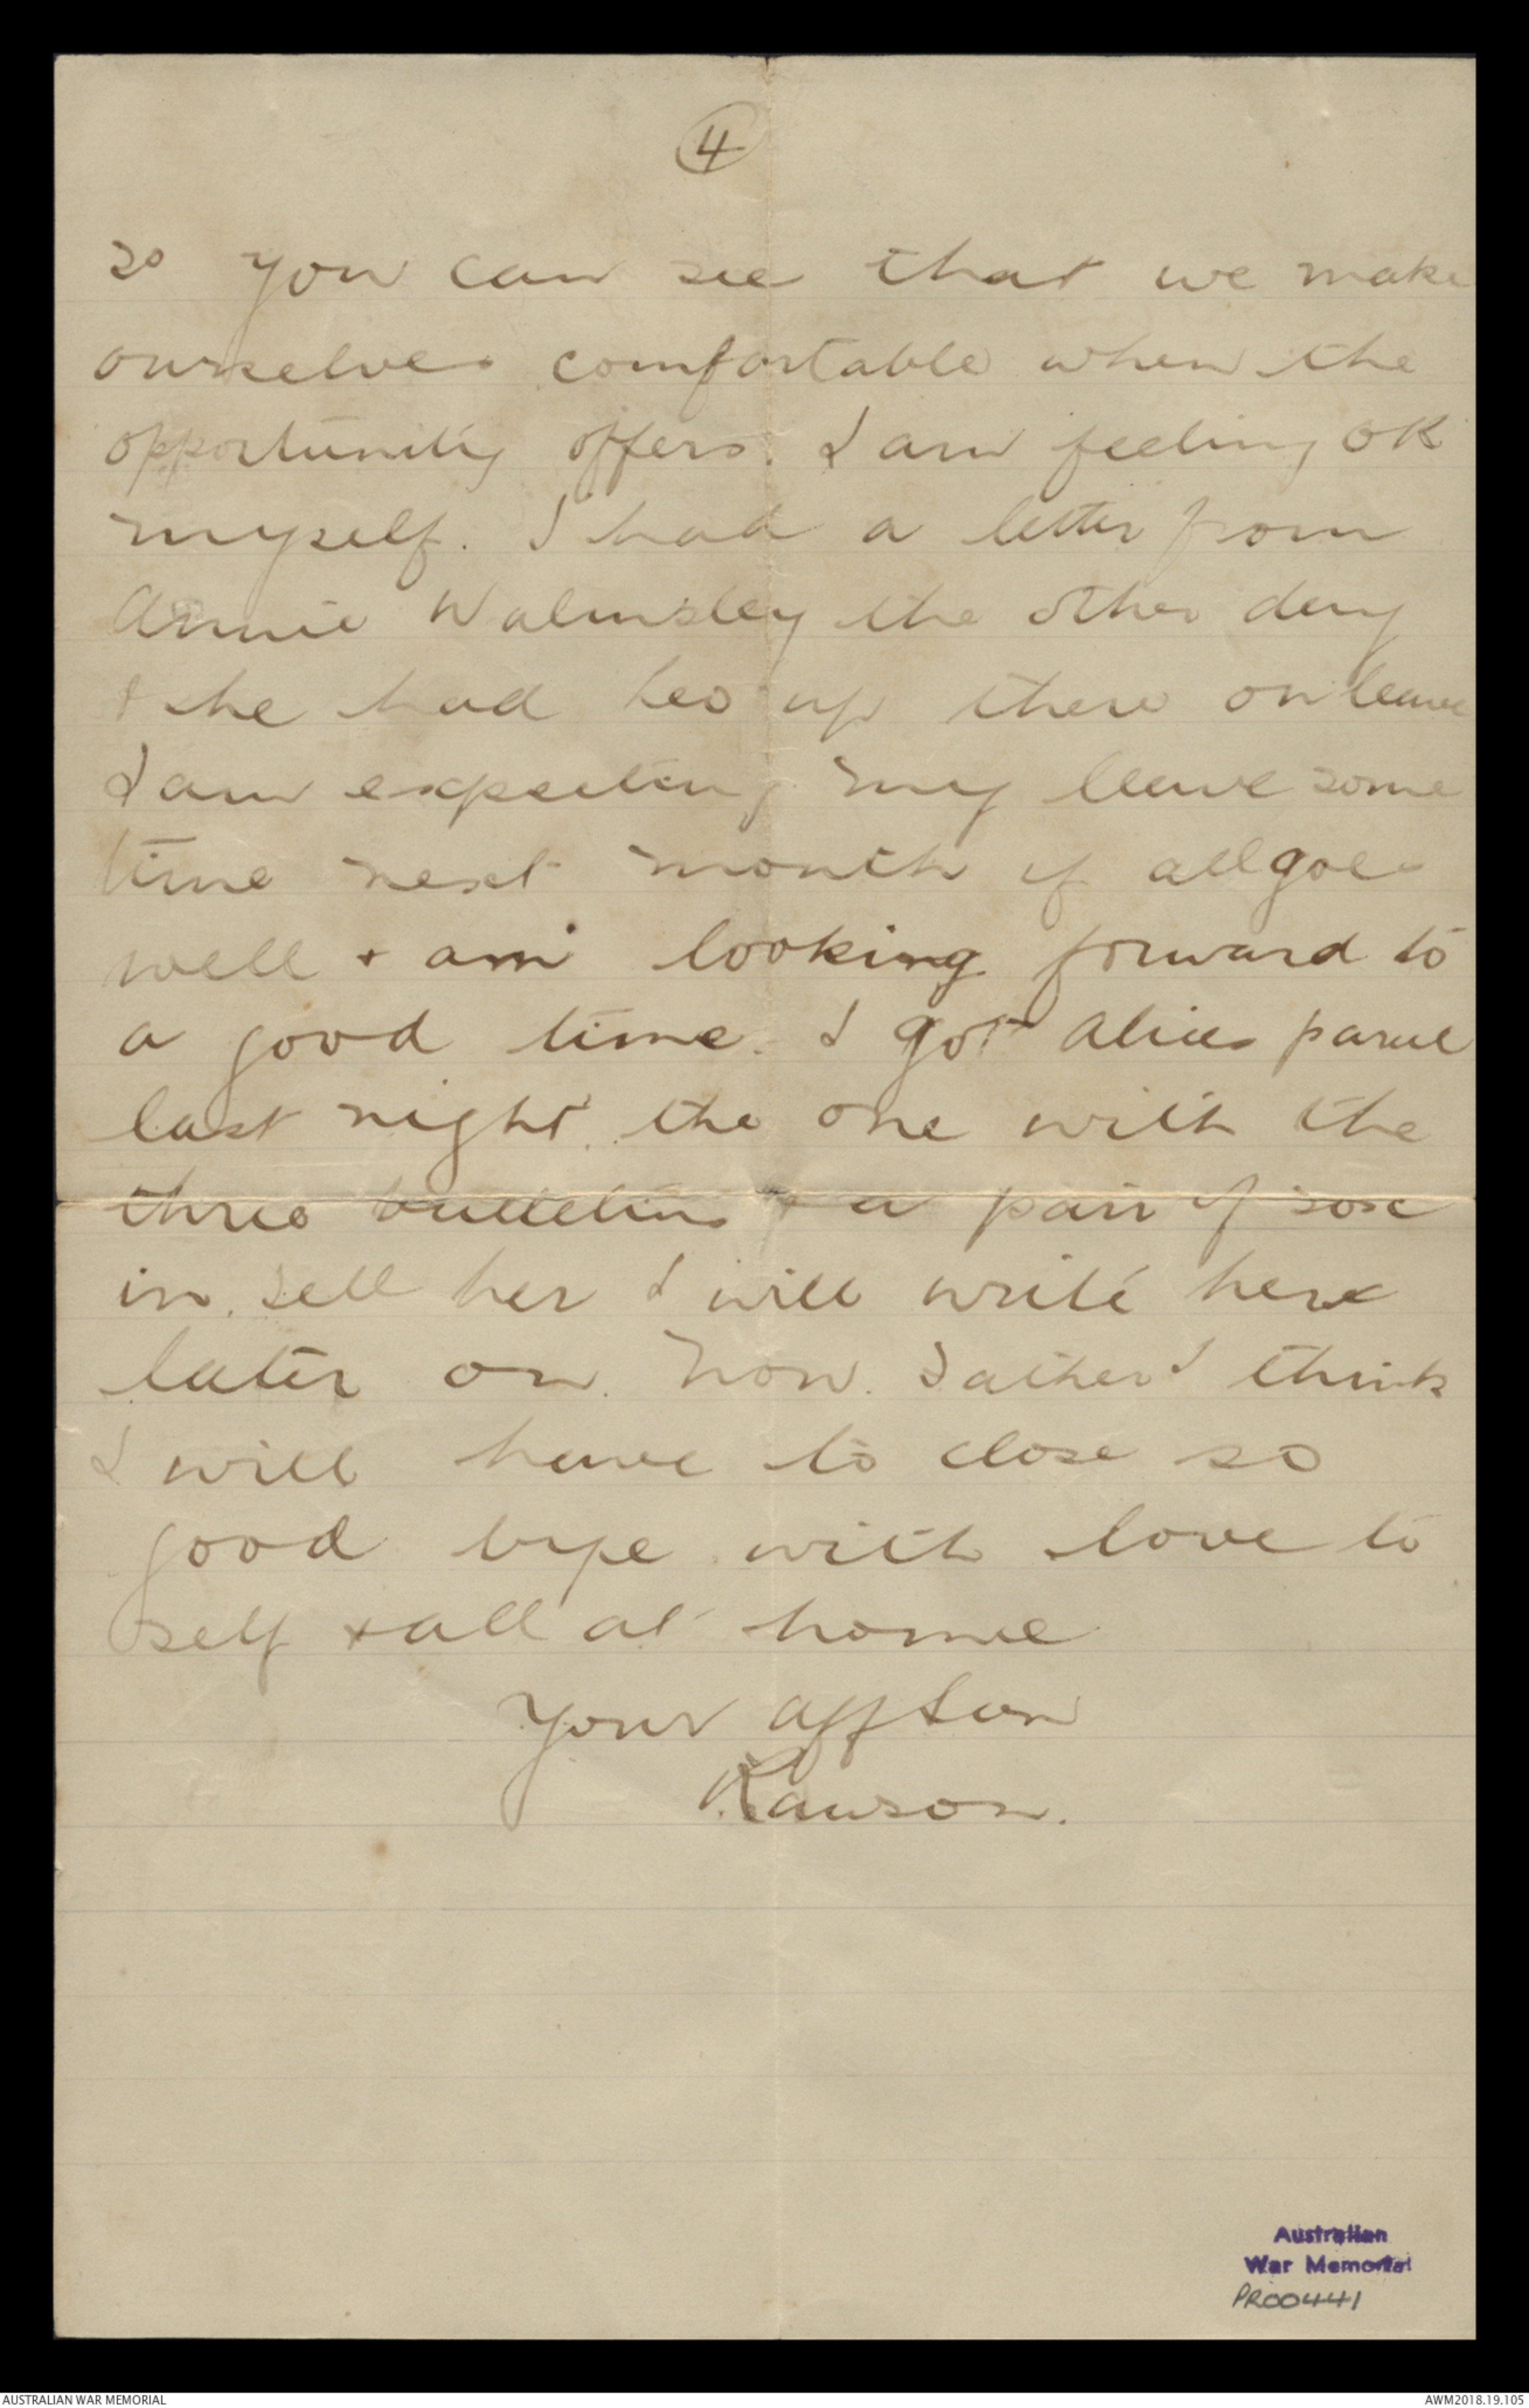 4
so you can see that we make
ourselves comfortable when the
opportunity offers. I am feeling OK
myself. I had a letter from
Annie Walmsley the other day
& she had Leo up there on leave
I am expecting my leave some
time next month if all goes
well & am looking forward to
a good time. I got Alices parcel
last night the one with the
three bulletins & a pair of sox
in. Tell her I will write her
later on. Now Father I think
I will have to close so
good bye with love to
self & all at home
Your aff Son
Rawson.
Australian
War Memorial
PR00441
AUSTRALIAN WAR MEMORIAL
AWM2018.19.105